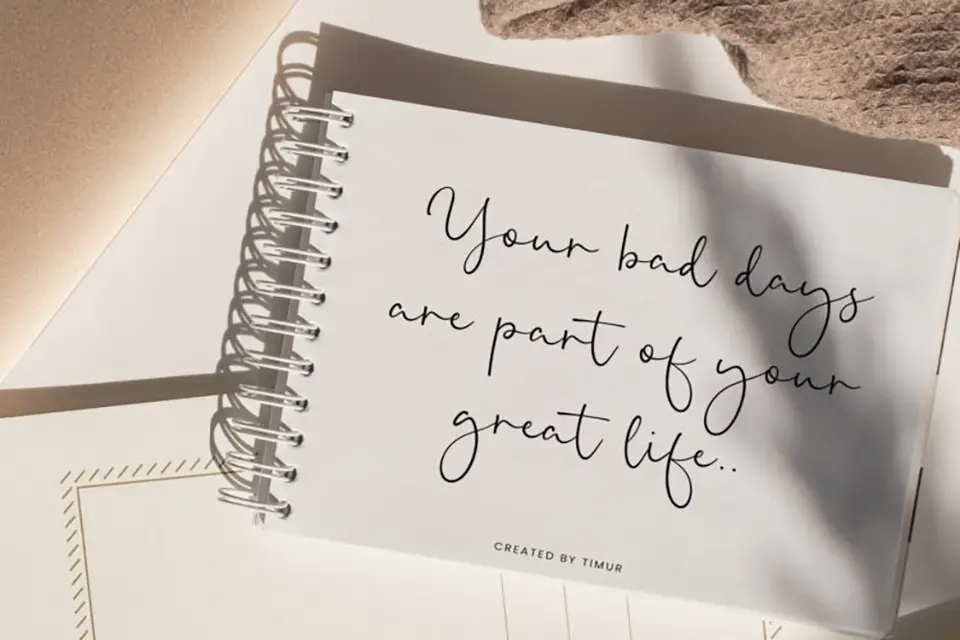 Your bad days
are part of your
great life..
CREATED BY TIMUR